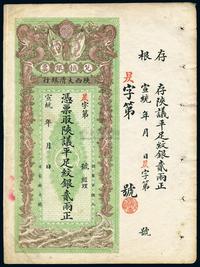 陝西大清銀行
存根
昃字第 號
宣統 年 月 日昃字第 號
存陝議平足紋銀貳兩正
昃字第 號 經理
憑票取陝議平足紋銀貳兩正
宣統 年 月 日